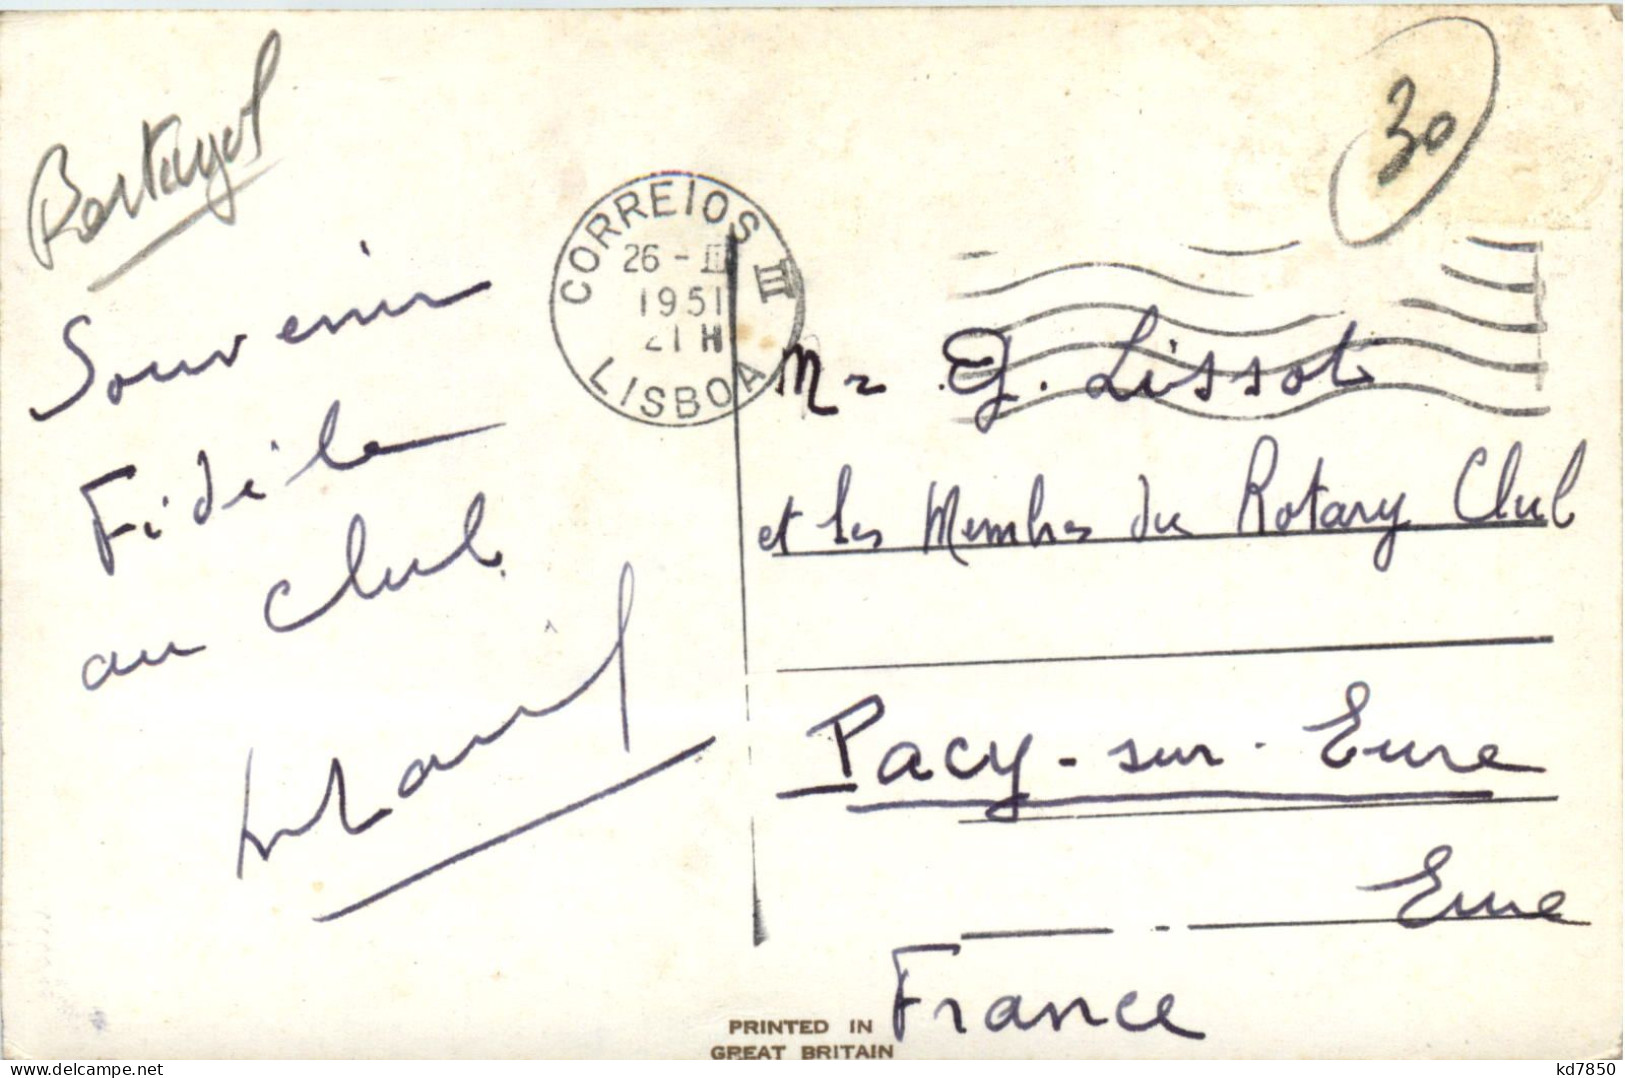 Portugal
30
CORREIOS III
26 - III
1951
21 H
LISBOA
Souvenir
Fidèle
au Club
Mr G. Lissot
et les Membres du Rotary Club
Pacy-sur-Eure
Eure
France
PRINTED IN
GREAT BRITAIN
kd7850